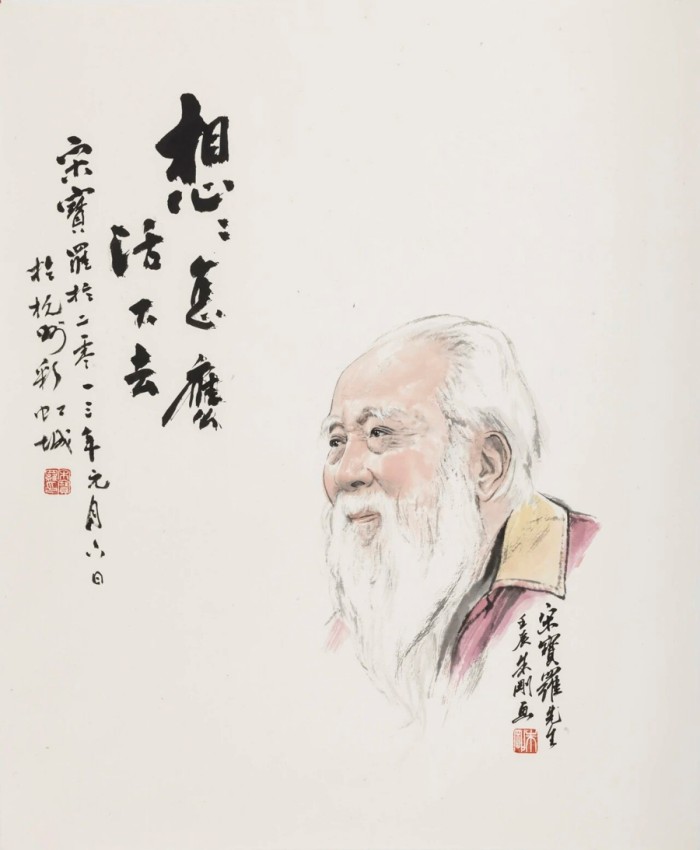 想〻怎麽
活下去
宋寶羅於二零一三年元月六日
於杭州彩虹城
宋寶羅先生
壬辰朱剛画